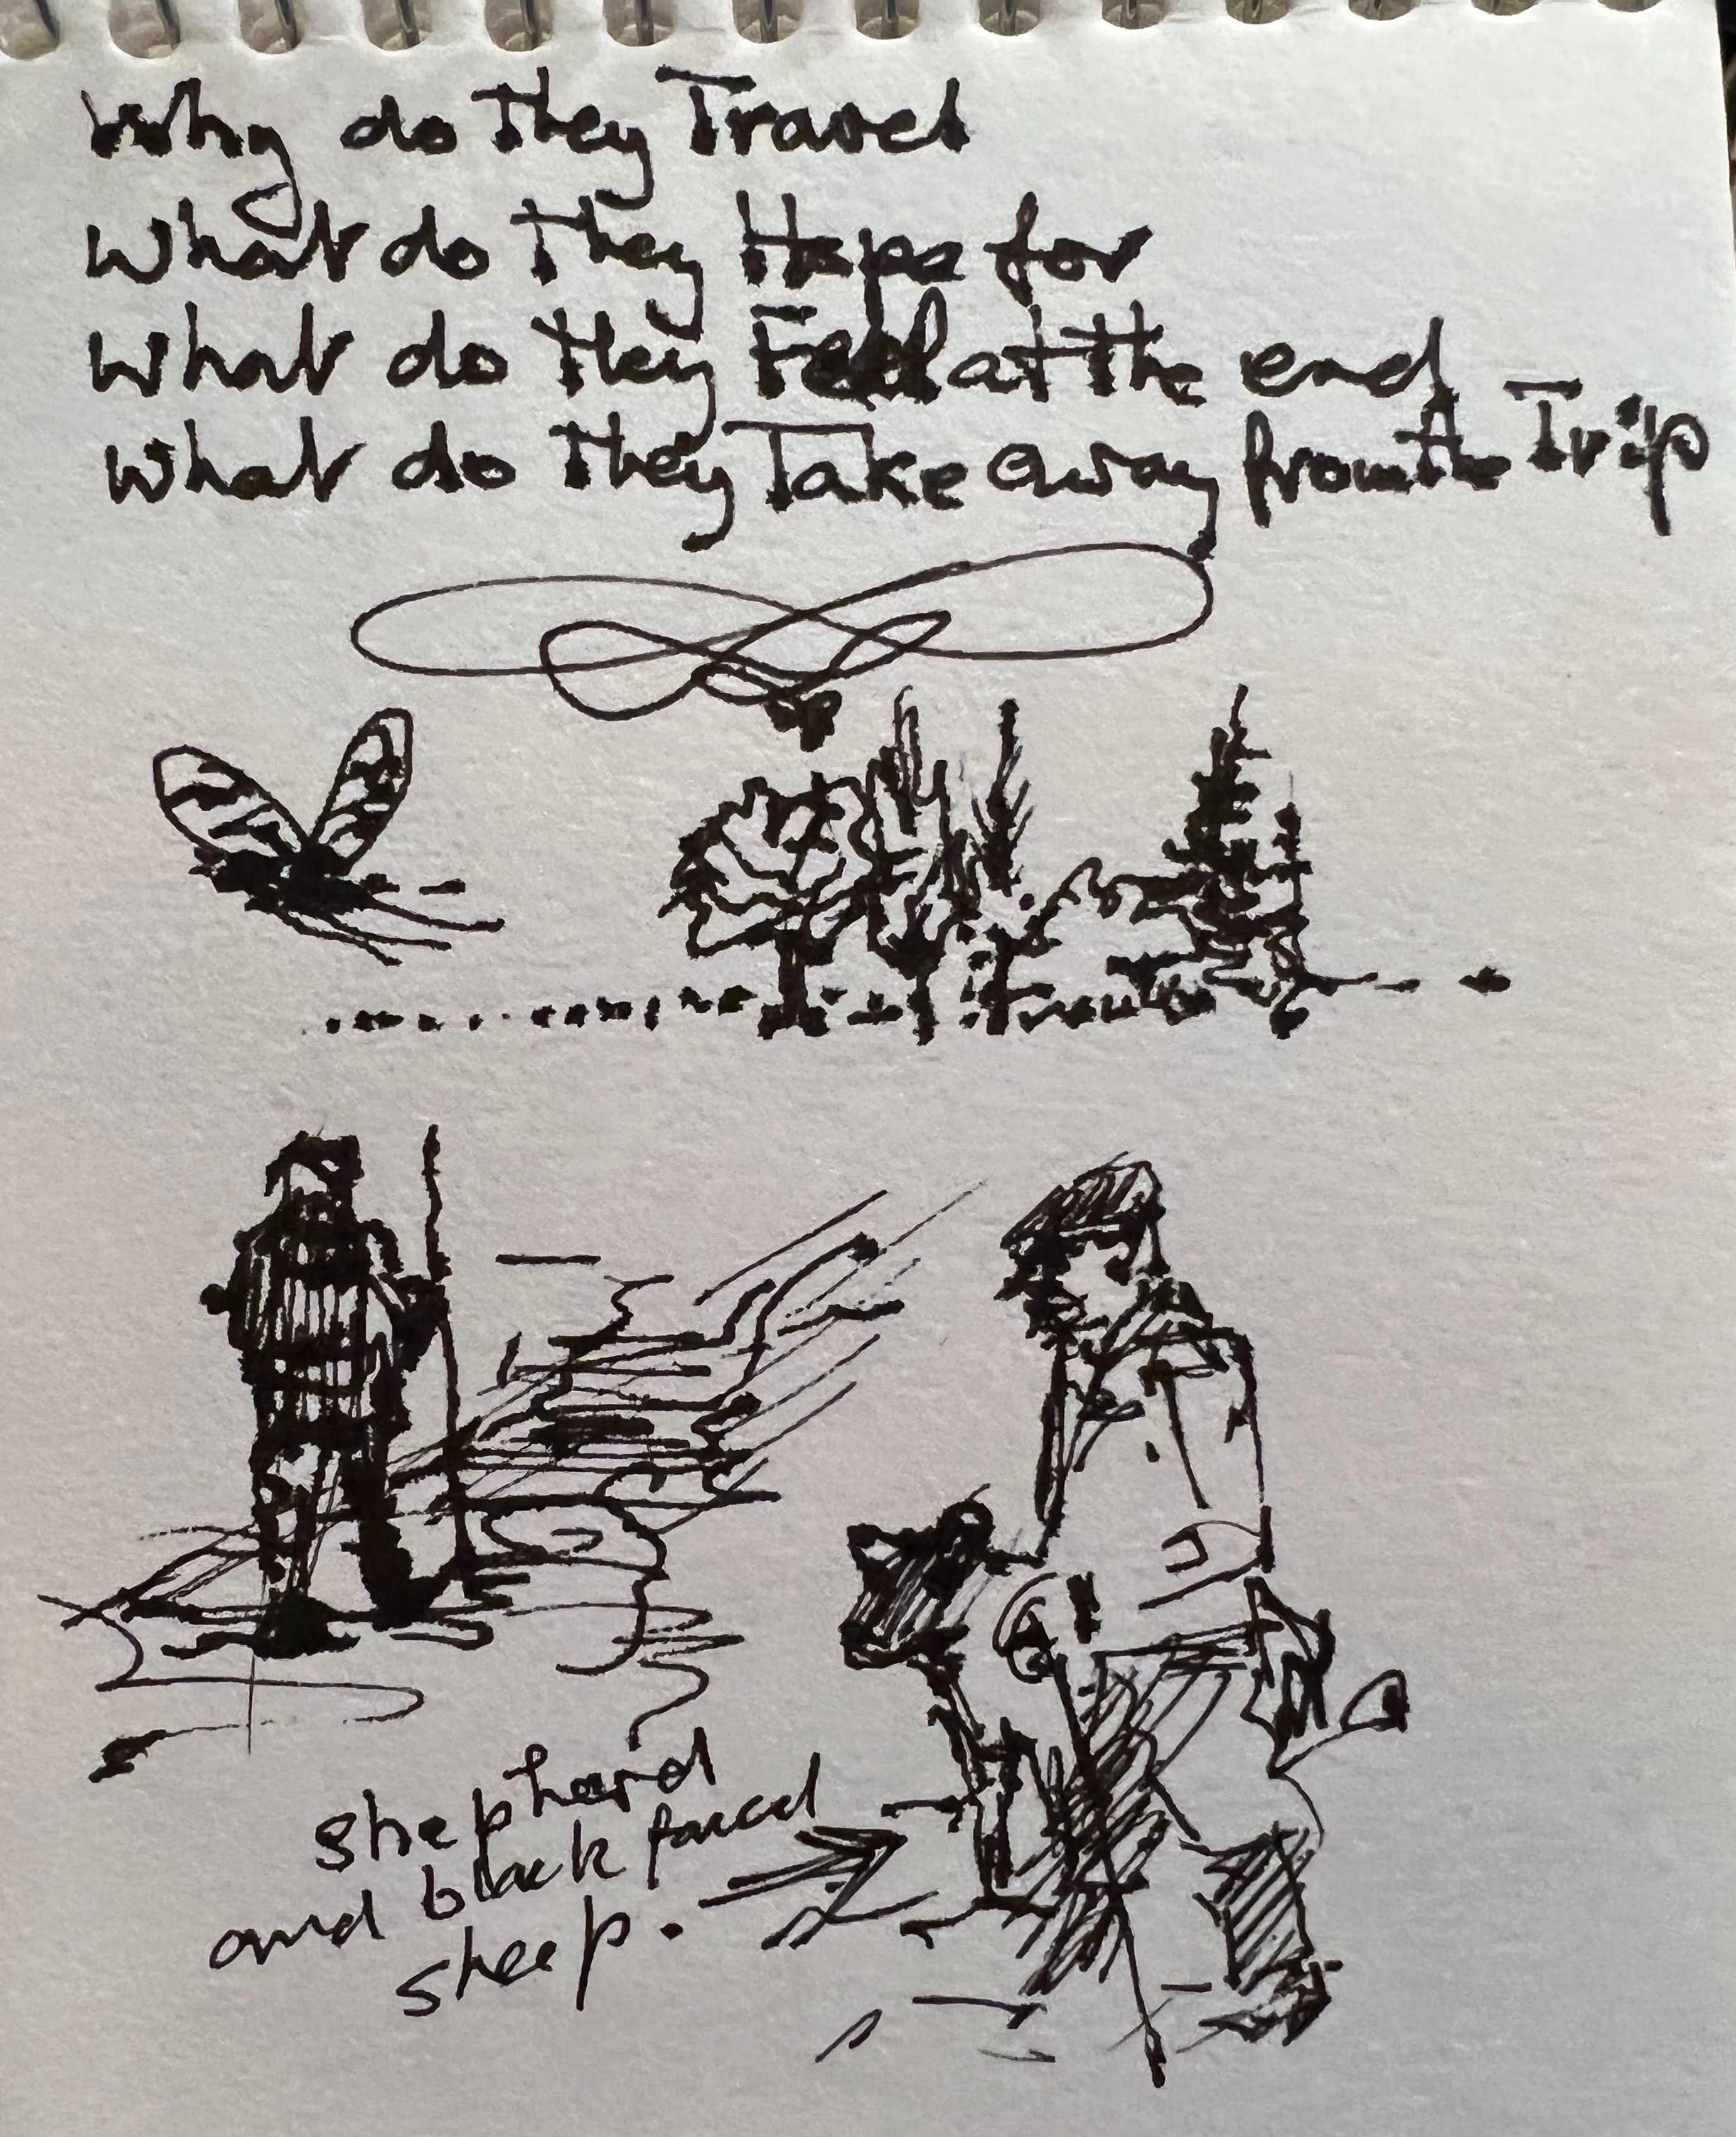 Why do They Travel
What do They Hope for
What do They Feel at the end
What do They Take away from the Trip
shepherd
and black faced
sheep.